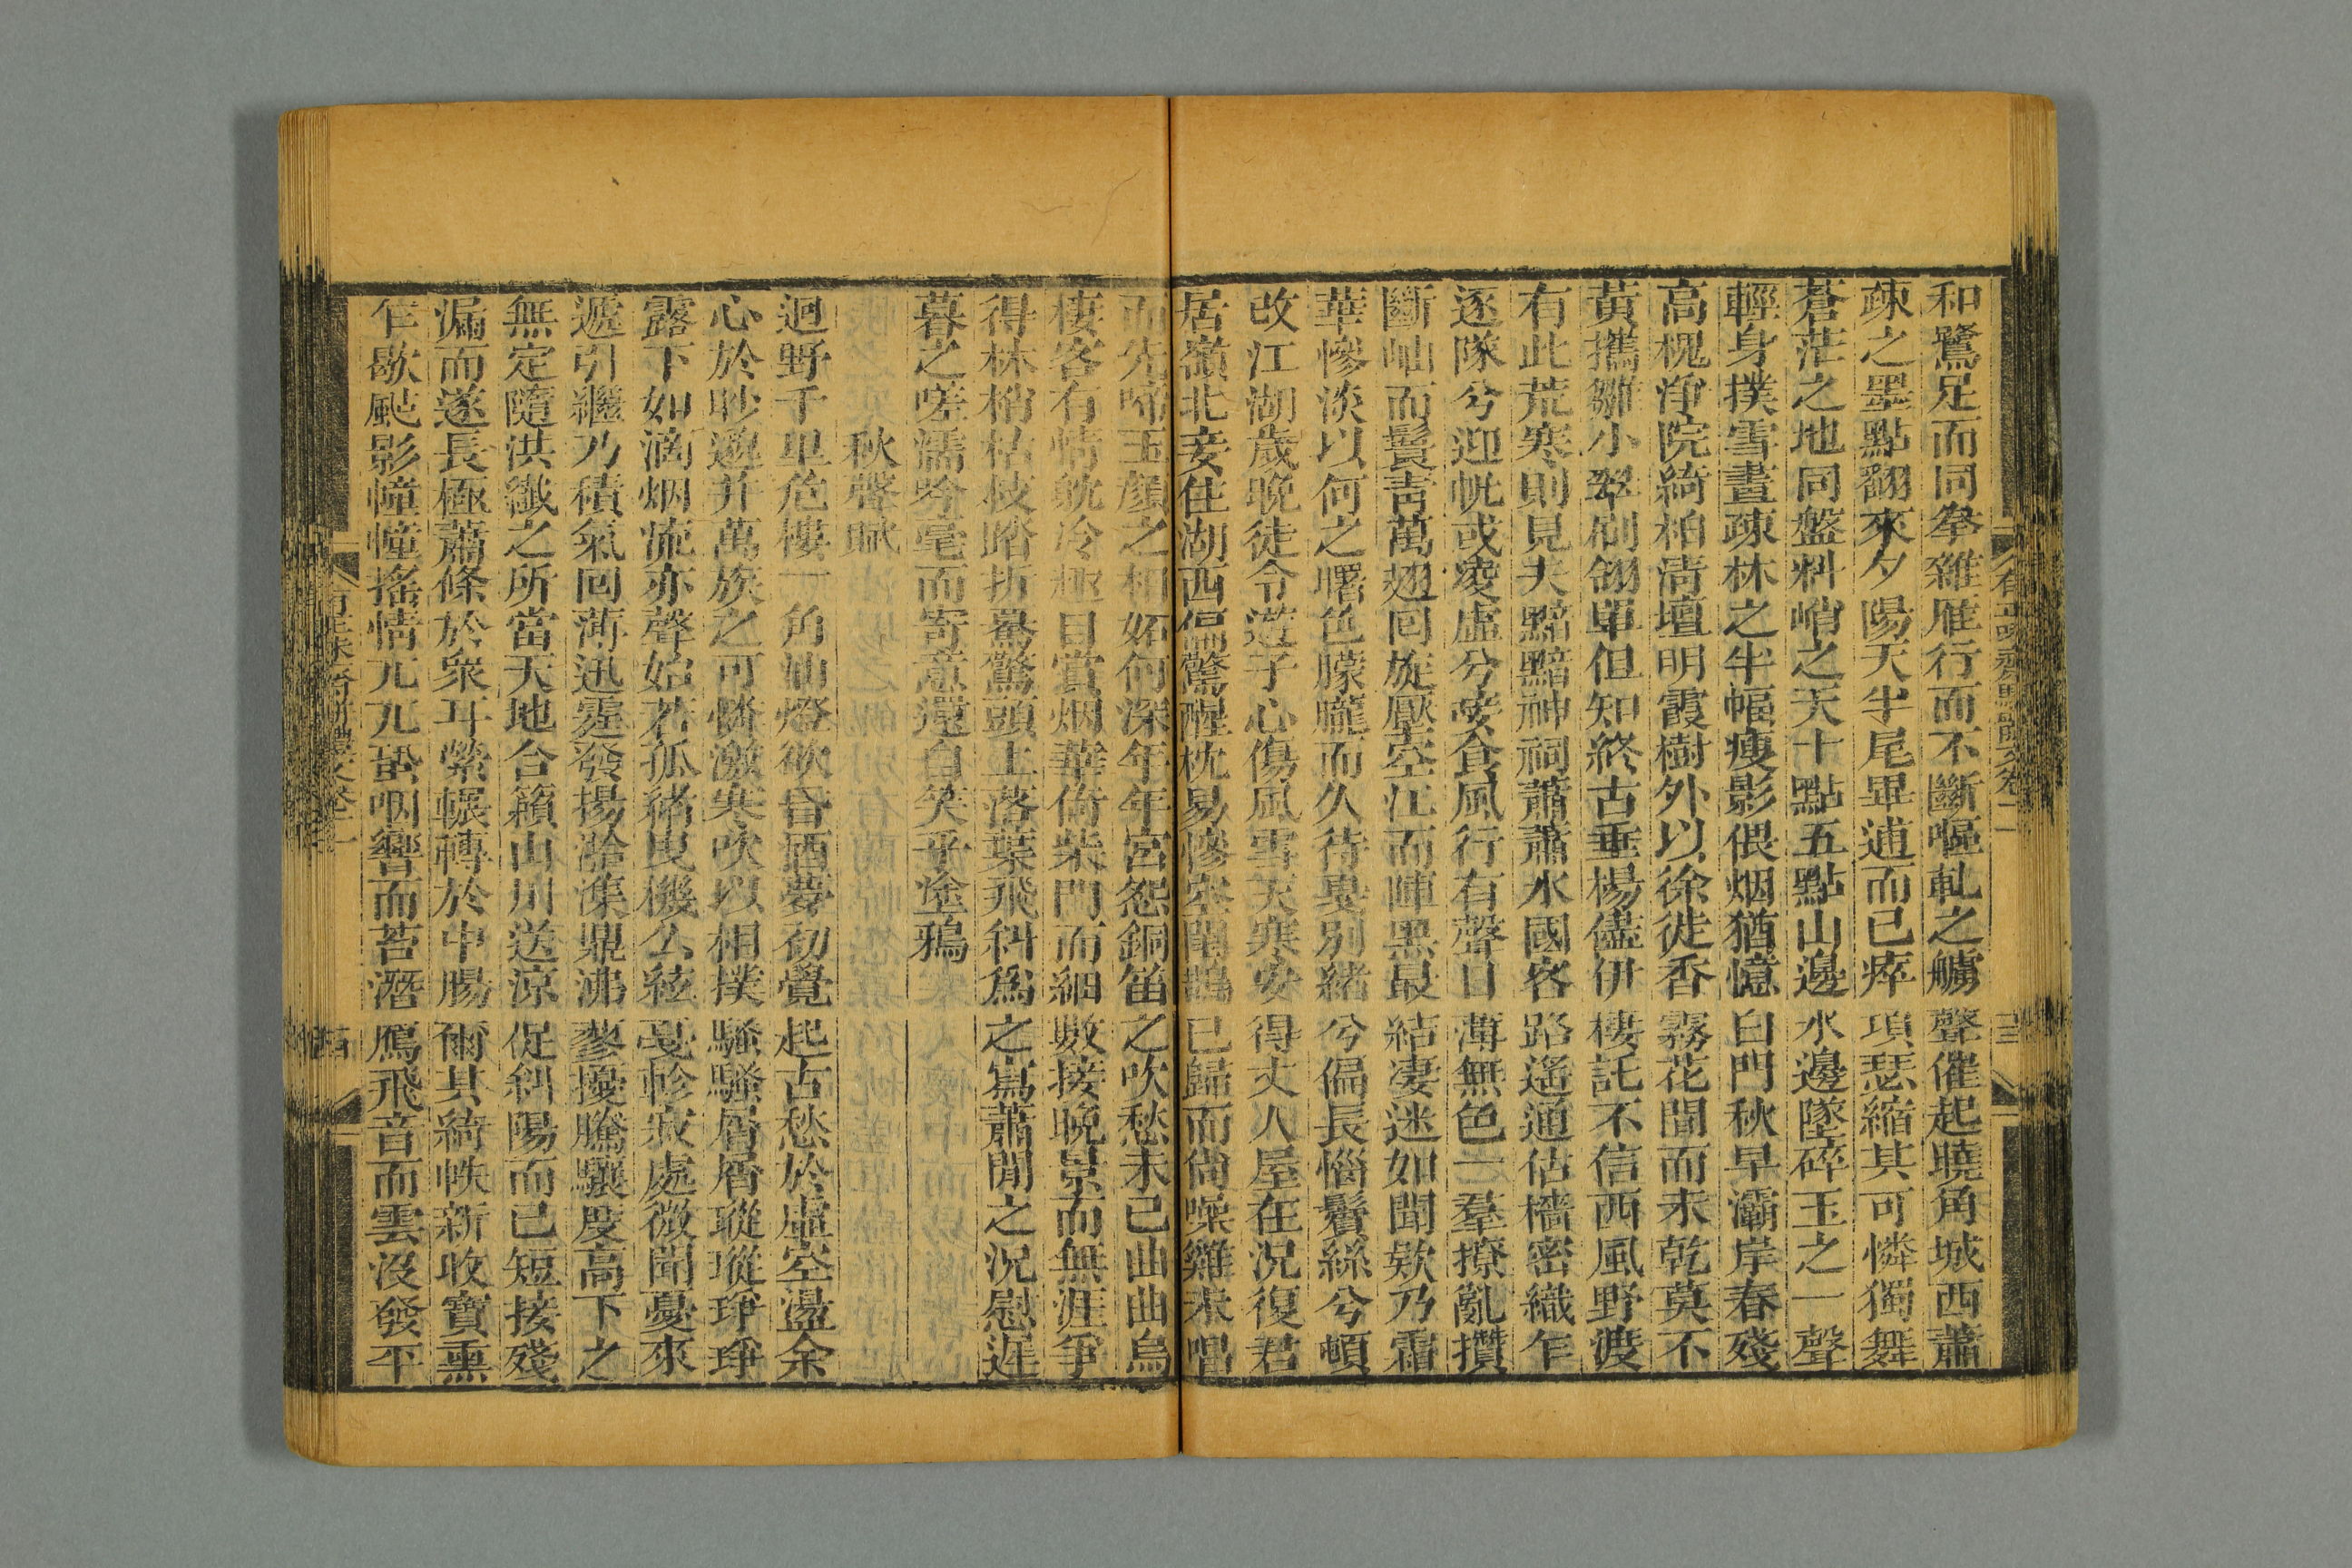 和鷺足而同拳雜雁行而不斷嘔軋之艣聲催起曉角城西蕭
疎之墨點翻來夕陽天半尾畢逋而已瘁項瑟縮其可憐獨舞
蒼茫之地同盤料峭之天十點五點山邊水邊墜碎玉之一聲
輕身撲雪晝疎林之半幅瘦影偎烟猶憶白門秋早灞岸春殘
高槐淨院綺柏清壇明霞樹外以徐徙香霧花間而未乾莫不
黃攜雛小翠刷翎單但知終古垂楊儘伊棲託不信西風野渡
有此荒寒則見夫黯黯神祠蕭蕭水國客路遙通估檣密織乍
逐隊兮迎帆或凌虛兮啖食風行有聲日薄無色一羣撩亂攢
斷岫而鬟青萬翅囘旋壓空江而陣黑最結凄迷如聞欸乃霜
華慘淡以何之曙色朦朧而久待臭別緒兮偏長惱鬢絲兮頓
改江湖歲晚徒令遊子心傷風雪天寒安得丈人屋在況復君
居嶺北妾住湖西偏驚醒枕易慘空閨鵲已歸而尙噪雞未唱
而先啼玉顏之相妬何深年年宮怨銅笛之吹愁未已曲曲烏
棲客有情躭冷趣目賞烟華倚柴門而細數接晚景而無涯爭
得林梢枯枝踏折驀驚頭上落葉飛斜爲之寫蕭閒之況慰遲
暮之嗟濡吟毫而寄意還自笑乎塗鴉
秋聲賦
迴野千里危樓一角油燈欲昏酒夢初覺起古愁於虛空盪余
心於眇邈幷萬族之可憐激寒吹以相撲騷騷屑屑瑽瑽琤琤
露下如滴烟流亦聲始若孤緖曳機么絃戞軫寂處微聞憂來
遞引繼乃積氣囘薄迅霆發揚瀚渫鼎沸蓼擾騰驤度高下之
無定隨洪纖之所當天地合籟山川送凉促斜陽而已短接殘
漏而遂長極蕭條於衆耳縈輾轉於中腸爾其綺帙新收寶熏
乍歇颭影幢幢搖情兀兀蛩咽響而苔潛鴈飛音而雲沒發平